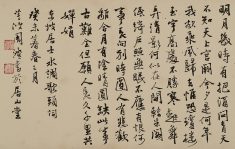 明月幾時有把酒問青天
不知天上宮闕今夕是何年
我欲乘風歸去惟恐瓊樓
玉宇高處不勝寒起舞
弄清影何似在人間轉朱閣
低綺戶照無眠不應有恨何
事長向別時圓人有悲歡
離合月有陰晴圓缺此事
古難全但願人長久千里共
嬋娟
東坡居士水調歌頭詞
癸未暮春之月